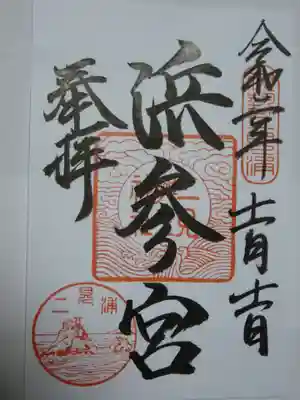 令和二年
十一月十一日
浜参宮
奉拝
二見浦